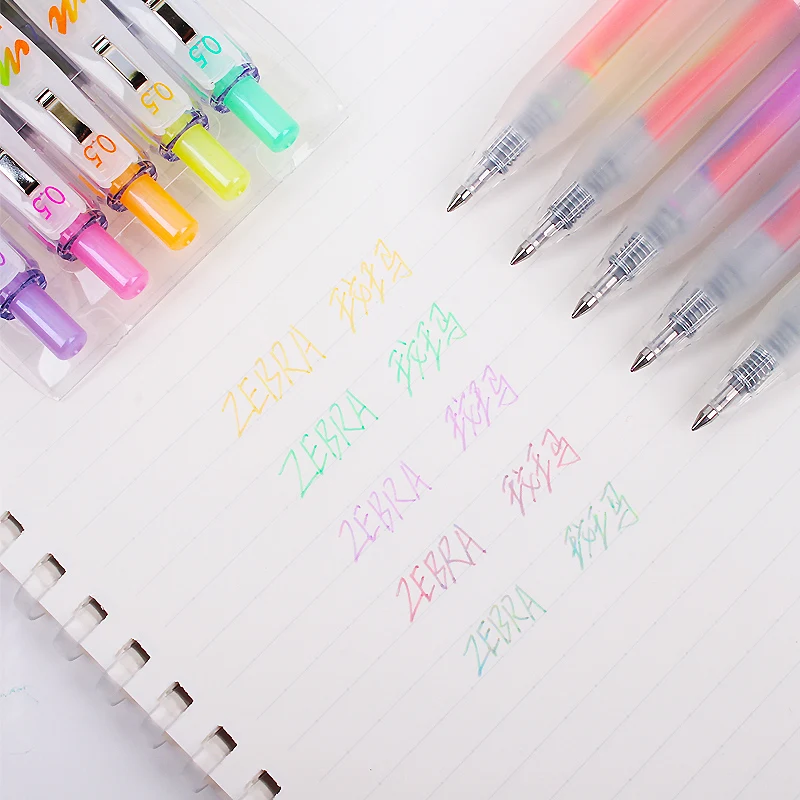 0.5
0.5
0.5
0.5
ZEBRA 斑马
ZEBRA 斑马
ZEBRA 斑马
ZEBRA 斑马
ZEBRA 斑马